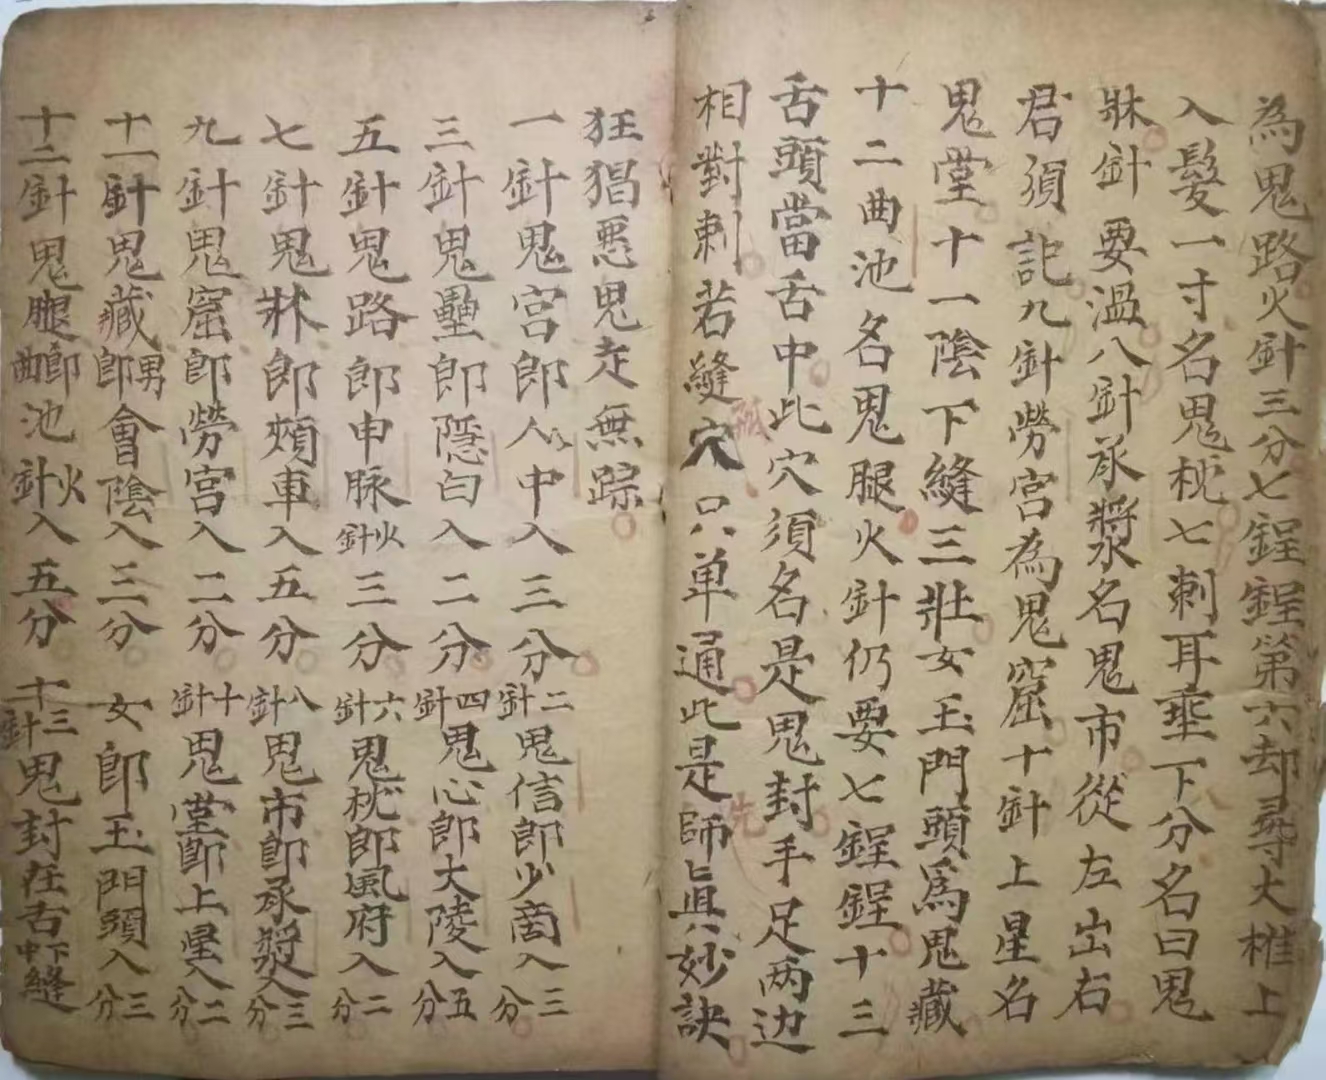 為鬼路火針三分七鍟鍟第六却尋大椎上
入髮一寸名鬼枕七刺耳垂下分名曰鬼
牀針要溫八針承漿名鬼市從左出右
君須記九針勞宮為鬼窟十針上星名
鬼堂十一陰下縫三壯女玉門頭為鬼藏
十二曲池名鬼腿火針仍要七鍟鍟十三
舌頭當舌中此穴須名是鬼封手足两边
相對刺若縫穴只单通此是師真妙訣
狂猖惡鬼走無踪
一針鬼宮郎人中入三分二針鬼信郎少商入三分
三針鬼壘郎隱白入二分四針鬼心郎大陵入五分
五針鬼路郎申脉火針三分六針鬼枕郎風府入二分
七針鬼牀郎頰車入五分八針鬼市郎承漿入三分
九針鬼窟郎勞宮入二分十針鬼堂郎上星入二分
十一針鬼藏男郎會陰入三分女郎玉門頭入三分
十二針鬼腿郎曲池火針入五分十三針鬼封在舌下中縫